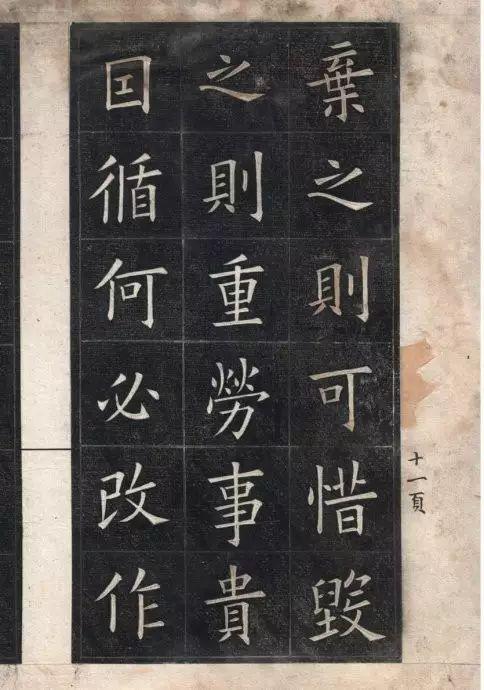 十一頁
棄之則可惜毀
之則重勞事貴
囙循何必改作